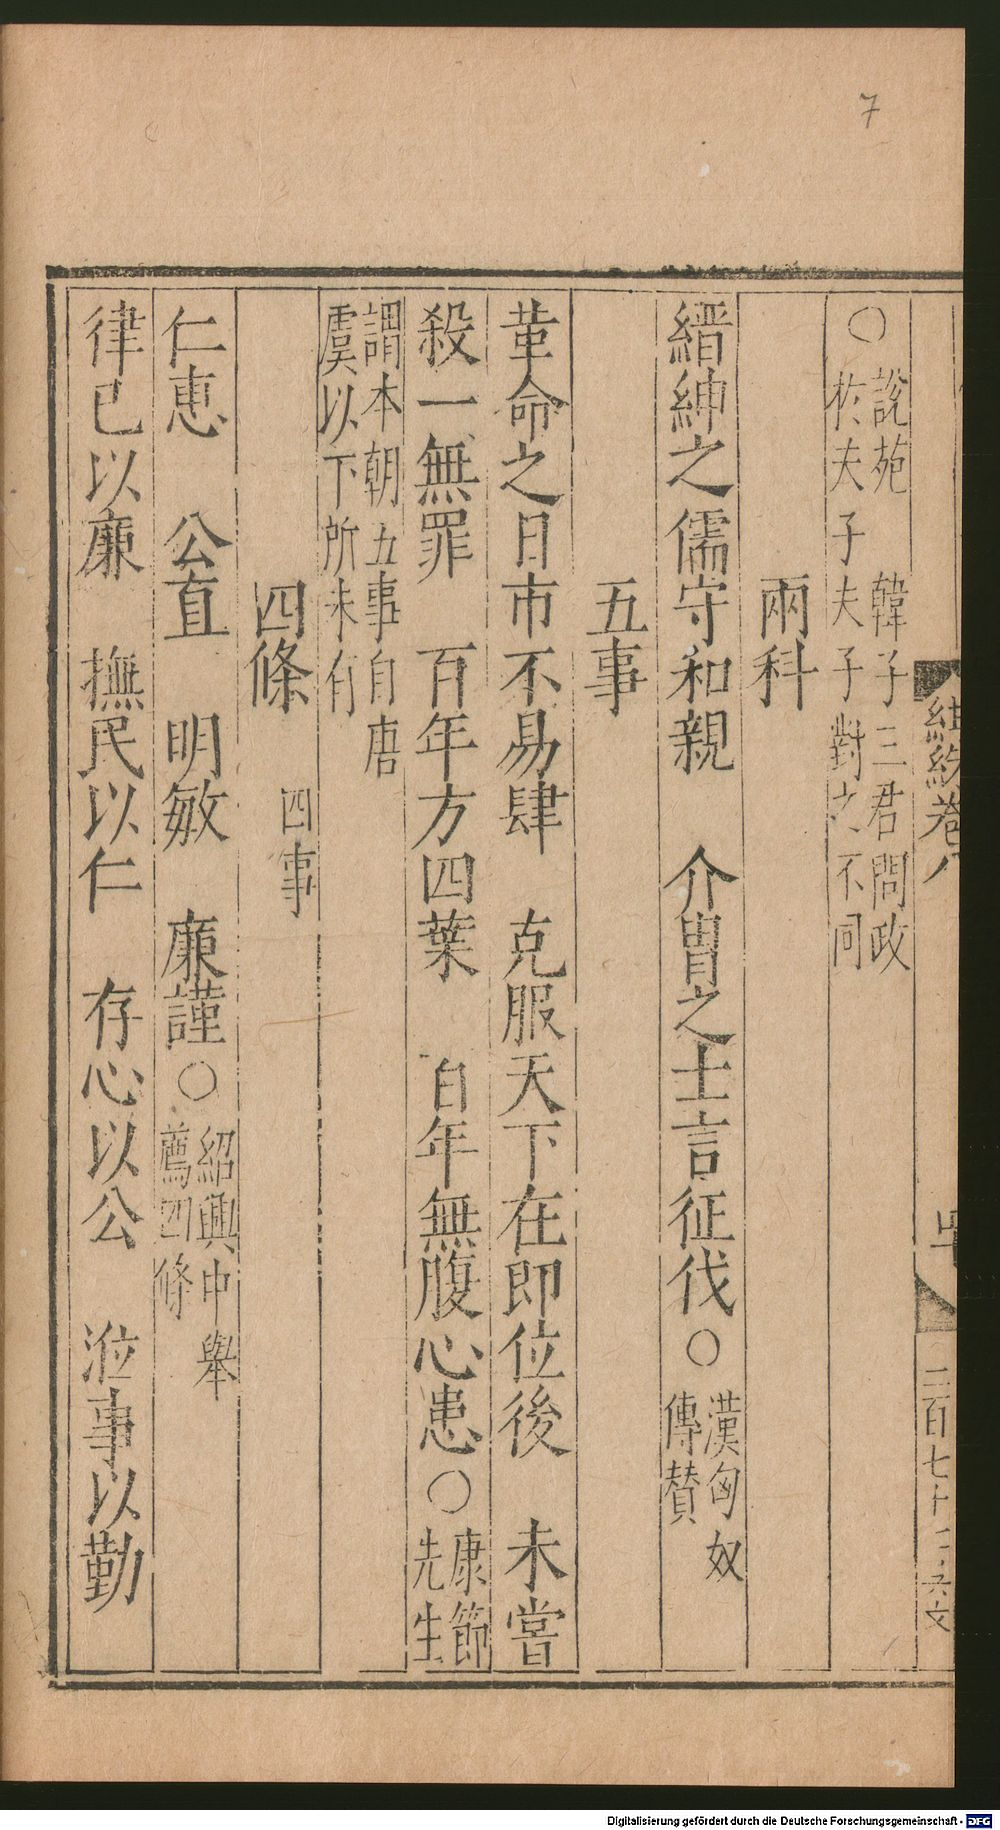 7
○說苑 韓子三君問政
於夫子夫子對之不同
兩科
縉紳之儒守和親 介胄之士言征伐○漢匈奴
傳贊
五事
革命之日市不易肆 克服天下在即位後 未嘗
殺一無罪 百年方四葉 百年無腹心患○康節
先生
謂本朝五事自唐
虞以下所未有
四條 四事
仁惠 公直 明敏 廉謹○紹興中舉
薦四條
律己以廉 撫民以仁 存心以公 涖事以勤
卷八
二百七十
Digitalisierung gefördert durch die Deutsche Forschungsgemeinschaft - DFG